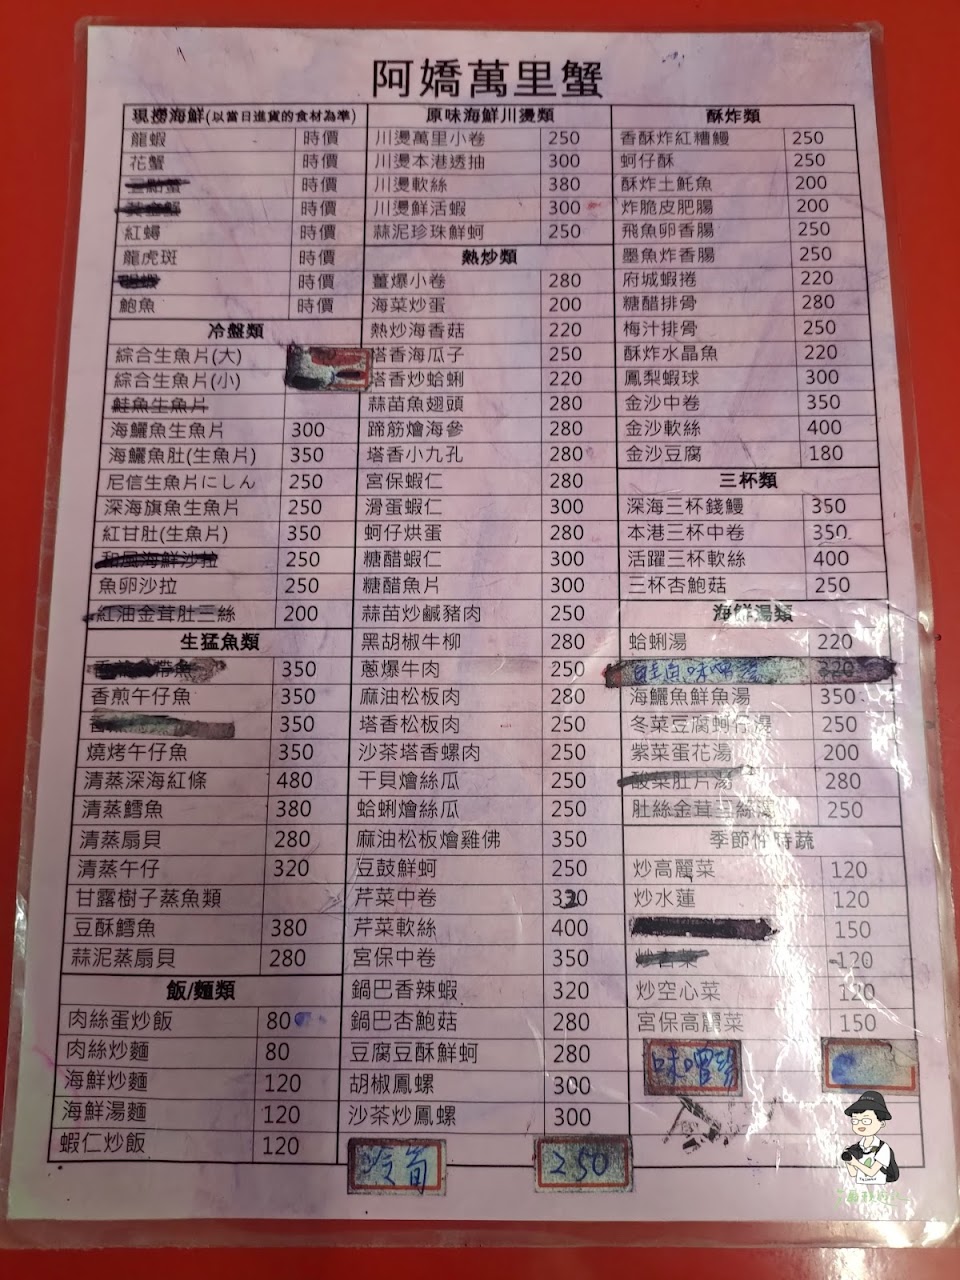 阿嬌萬里蟹
現撈海鮮(以當日進貨的食材為準)
龍蝦 時價
花蟹 時價
三點蟹 時價
黃金蟹 時價
紅蟳 時價
龍虎斑 時價
時價
鮑魚 時價
冷盤類
綜合生魚片(大)
綜合生魚片(小)
鮭魚生魚片
海鱺魚生魚片 300
海鱺魚肚(生魚片) 350
尼信生魚片にしん 250
深海旗魚生魚片 250
紅甘肚(生魚片) 350
和風海鮮沙拉 250
魚卵沙拉 250
紅油金茸肚三絲 200
生猛魚類
帶魚 350
香煎午仔魚 350
350
燒烤午仔魚 350
清蒸深海紅條 480
清蒸鱈魚 380
清蒸扇貝 280
清蒸午仔 320
甘露樹子蒸魚類
豆酥鱈魚 380
蒜泥蒸扇貝 280
飯/麵類
肉絲蛋炒飯 80
肉絲炒麵 80
海鮮炒麵 120
海鮮湯麵 120
蝦仁炒飯 120
原味海鮮川燙類
川燙萬里小卷 250
川燙本港透抽 300
川燙軟絲 380
川燙鮮活蝦 300
蒜泥珍珠鮮蚵 250
熱炒類
薑爆小卷 280
海菜炒蛋 200
熱炒海香菇 220
塔香海瓜子 250
塔香炒蛤蜊 220
蒜苗魚翅頭 280
蹄筋燴海參 280
塔香小九孔 280
宮保蝦仁 280
滑蛋蝦仁 300
蚵仔烘蛋 280
糖醋蝦仁 300
糖醋魚片 300
蒜苗炒鹹豬肉 250
黑胡椒牛柳 280
蔥爆牛肉 250
麻油松板肉 280
塔香松板肉 250
沙茶塔香螺肉 250
干貝燴絲瓜 250
蛤蜊燴絲瓜 250
麻油松板燴雞佛 350
豆鼓鮮蚵 250
芹菜中卷 320
芹菜軟絲 400
宮保中卷 350
鍋巴香辣蝦 320
鍋巴杏鮑菇 280
豆腐豆酥鮮蚵 280
胡椒鳳螺 300
沙茶炒鳳螺 300
冷筍 250
酥炸類
香酥炸紅糟鰻 250
蚵仔酥 250
酥炸土魠魚 200
炸脆皮肥腸 200
飛魚卵香腸 250
墨魚炸香腸 250
府城蝦捲 220
糖醋排骨 280
梅汁排骨 250
酥炸水晶魚 220
鳳梨蝦球 300
金沙中卷 350
金沙軟絲 400
金沙豆腐 180
三杯類
深海三杯錢鰻 350
本港三杯中卷 350
活躍三杯軟絲 400
三杯杏鮑菇 250
海鮮湯類
蛤蜊湯 220
鮭魚味噌湯 320
海鱺魚鮮魚湯 350
冬菜豆腐蚵仔湯 250
紫菜蛋花湯 200
酸菜肚片湯 280
肚絲金茸三絲湯 250
季節性時蔬
炒高麗菜 120
炒水蓮 120
150
炒杏菜 120
炒空心菜 120
宮保高麗菜 150
味噌湯